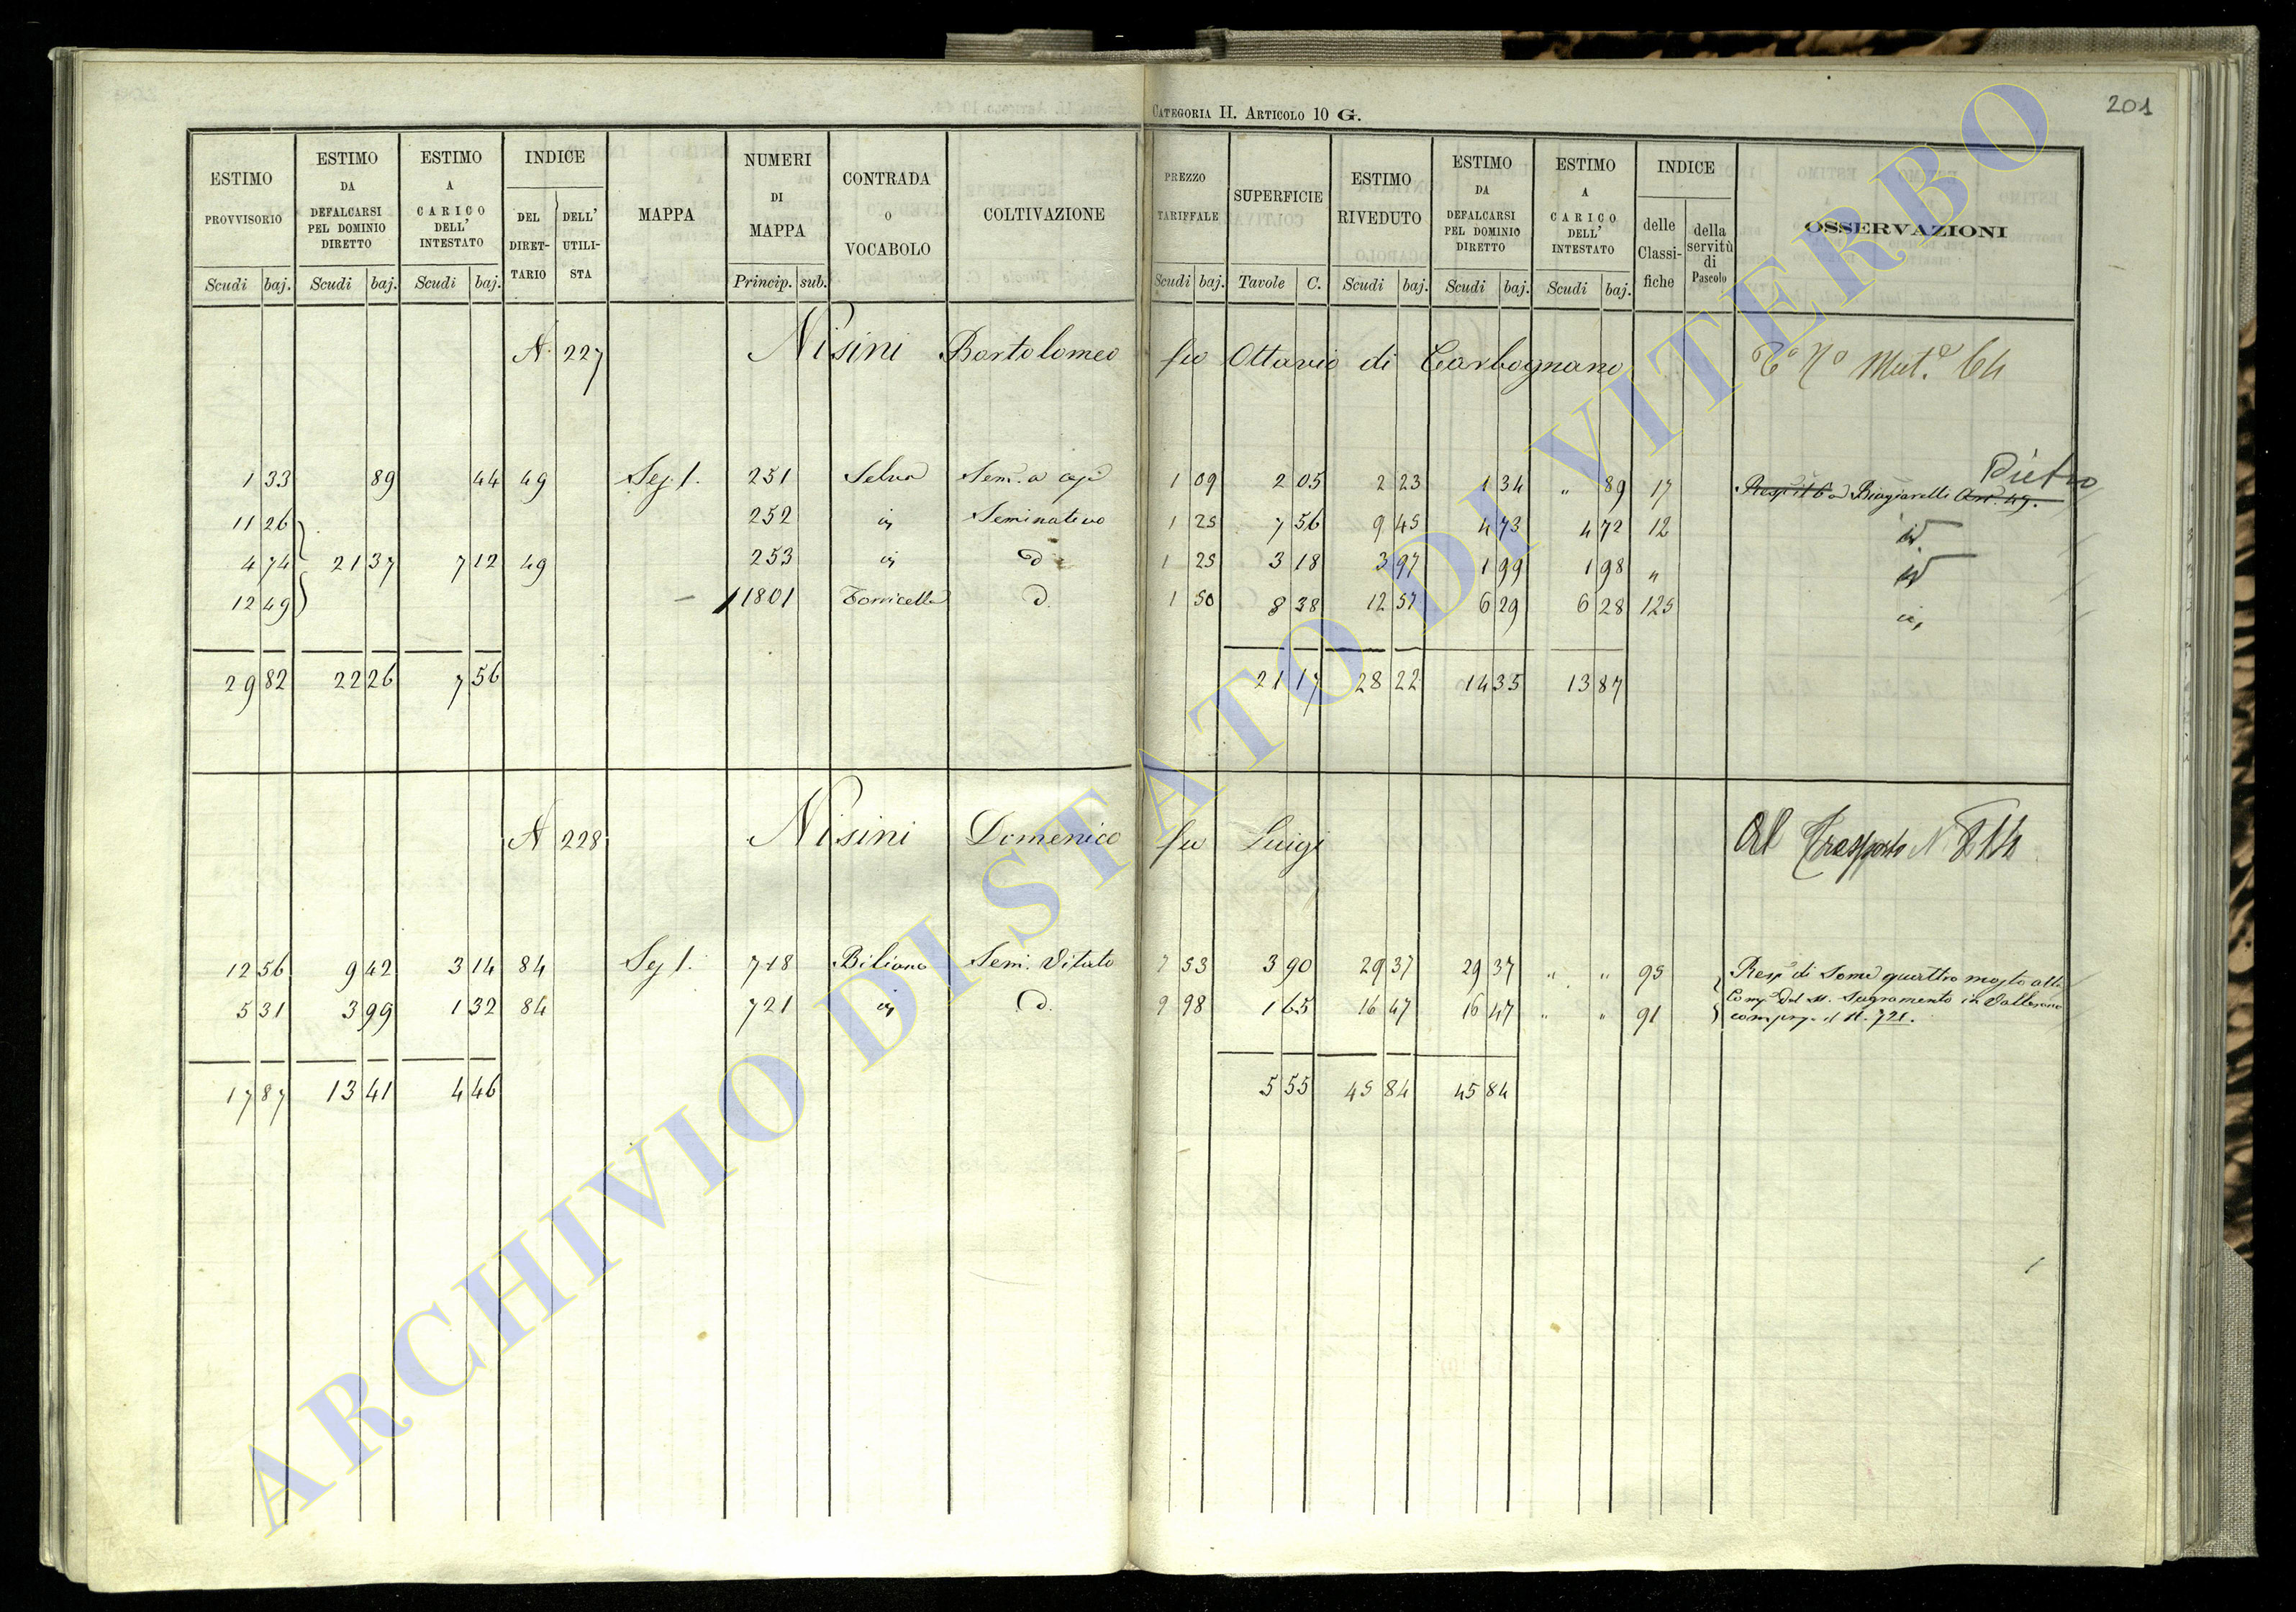 201
CATEGORIA II. ARTICOLO 10 G.
ESTIMO PROVVISORIO Scudi baj.
ESTIMO DA DEFALCARSI PEL DOMINIO DIRETTO Scudi baj.
ESTIMO A CARICO DELL' INTESTATO Scudi baj.
INDICE DEL DIRET-TARIO DELL' UTILI-STA
MAPPA
NUMERI DI MAPPA Princip. sub.
CONTRADA O VOCABOLO
COLTIVAZIONE
PREZZO TARIFFALE Scudi baj.
SUPERFICIE Tavole C.
ESTIMO RIVEDUTO Scudi baj.
ESTIMO DA DEFALCARSI PEL DOMINIO DIRETTO Scudi baj.
ESTIMO A CARICO DELL' INTESTATO Scudi baj.
INDICE delle Classi-fiche della servitù di Pascolo
OSSERVAZIONI
N. 227 Nisini Bartolomeo fu Ottavio di Carbognano Mut.
1 33 89 44 49 Sez. 1. 251 Selva 1 09 2 05 2 23 1 34 " 89 17 Biagiarelli Art. 49. Pietro
11 26 252 id Seminativo 1 25 7 56 9 45 4 73 4 72 12 id
4 74 21 37 7 12 49 253 id d 1 25 3 18 3 97 1 99 1 98 " id
12 49 1801 Torricella d. 1 50 8 38 12 57 6 29 6 28 125 id
29 82 22 26 7 56 21 17 28 22 14 35 13 87
N 228 Nisini Domenico fu Luigi Al Trasporto N.
12 56 9 42 3 14 84 Sez 1. 718 Biliano Sem. Vitato 7 53 3 90 29 37 29 37 " " 95 Resp. di Some quattro mosto alla
5 31 3 99 1 32 84 721 id d. 9 98 1 65 16 47 16 47 " " 91 Comp. del SS. Sagramento in Vallerano
N. 721.
17 87 13 41 4 46 5 55 45 84 45 84
ARCHIVIO DI STATO DI VITERBO